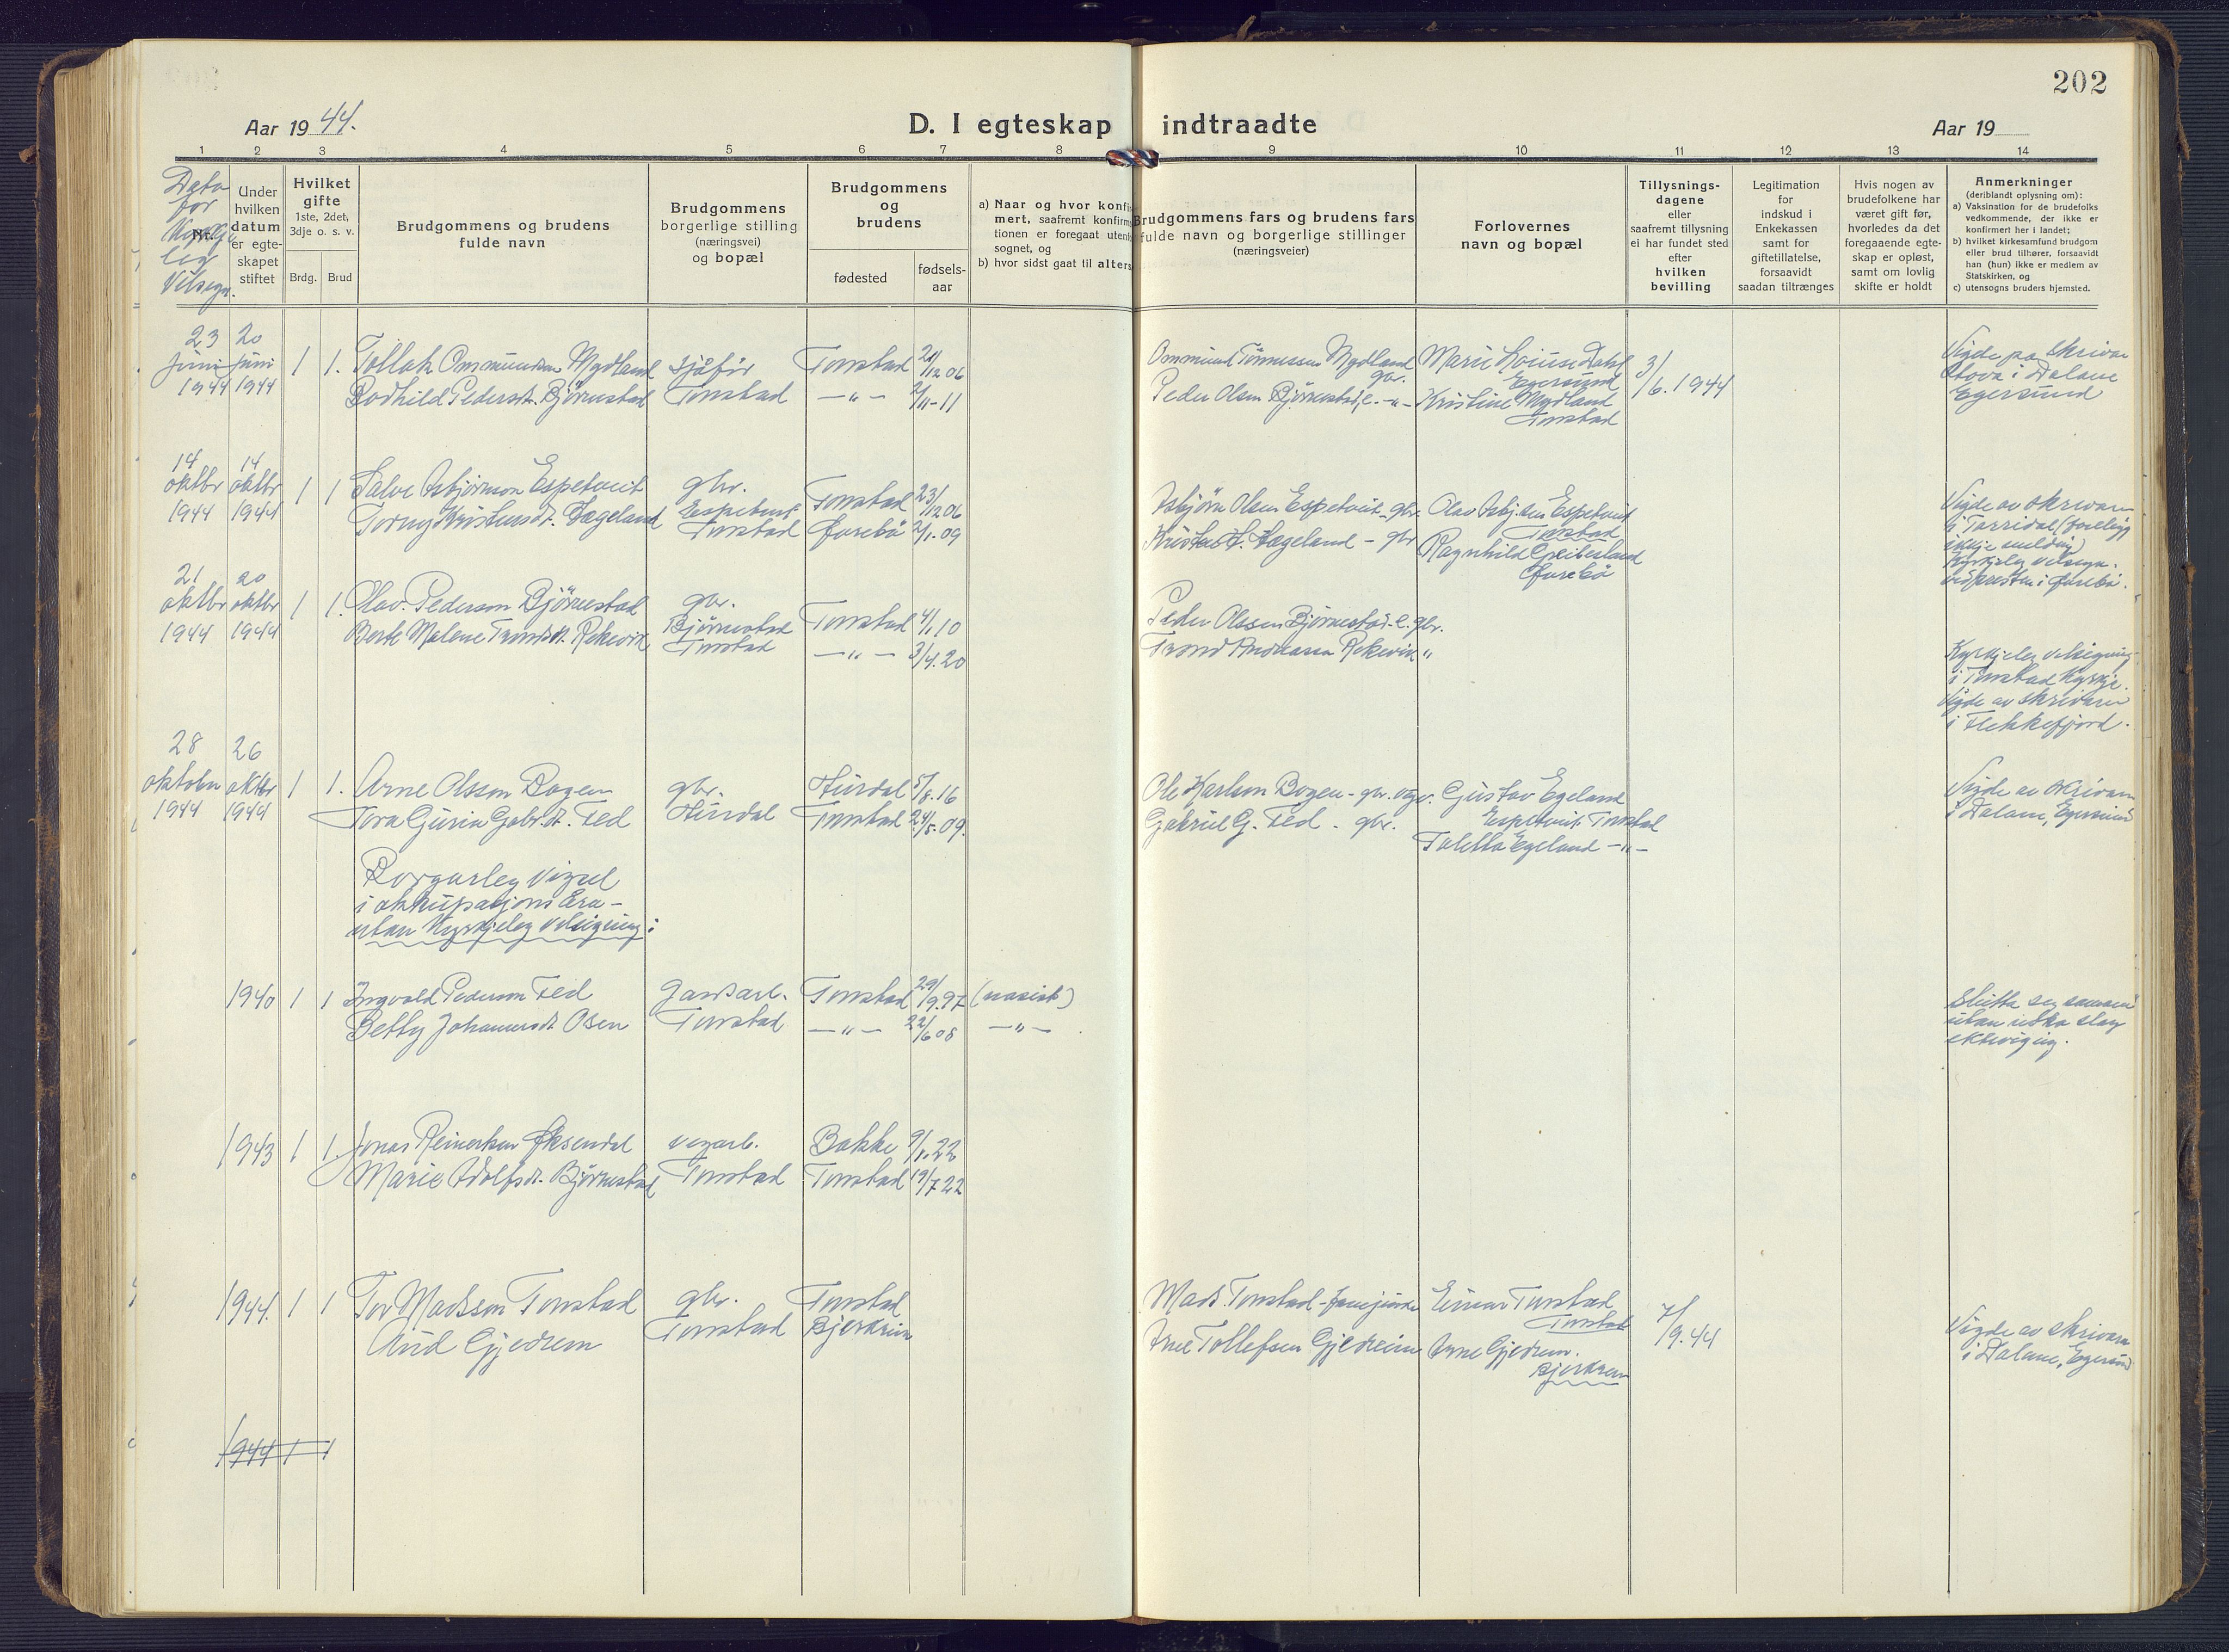 202
Aar 19 44.
D. I egteskap indtraadte
Aar 19
1 2 3 4 5 6 7 8 9 10 11 12 13 14
Dato
for
Kyrkje
leg
Velsegn.
Nr.
Under
hvilken
datum
er egte-
skapet
stiftet
Hvilket
gifte
1ste, 2det,
3dje o. s. v.
Brdg. Brud
Brudgommens og brudens
fulde navn
Brudgommens
borgerlige stilling
(næringsvei)
og bopæl
Brudgommens
og
brudens
fødested
fødsels-
aar
a) Naar og hvor konfir
mert, saafremt konfirm
tionen er foregaat utenf
sognet, og
b) hvor sidst gaat til alters
Brudgommens fars og brudens fars
fulde navn og borgerlige stillinger
(næringsveier)
Forlovernes
navn og bopæl
Tillysnings-
dagene
eller
saafremt tillysning
ei har fundet sted
efter
hvilken
bevilling
Legitimation
for
indskud i
Enkekassen
samt for
giftetillatelse,
forsaavidt
saadan tiltrænges
Hvis nogen av
brudefolkene har
været gift før,
hvorledes da det
foregaaende egte-
skap er opløst,
samt om lovlig
skifte er holdt
Anmerkninger
(deriblandt oplysning om):
a) Vaksination for de brudefolks
vedkommende, der ikke er
konfirmert her i landet;
b) hvilket kirkesamfund brudgom
eller brud tilhører, forsaavidt
han (hun) ikke er medlem av
Statskirken, og
c) utensogns bruders hjemsted.
23 juni 1944
20 juni 1944
1 1.
Tollak Ommundsen Mydland
Bodhild Pedersdt. Bjørnestad
sjåfør
Tonstad
Tonstad
— " —
/12 06
2/11-11
Ommund Tønnessen Mydland
gbr.
Peder Olsen Bjørnestad, e. - " -
Marie Lovise Dahl
Egersund
Kristine Mydland
Tonstad
3/6. 1944
Vigde på skrivar
stova i Dalane
Egersund
14 oktbr 1944
14 oktbr 1944
1 1
Salve Asbjørnson Espetveit
Torny Kristensdt. Fægeland
gbr.
Espetveit
Tonstad
Tonstad
Øvrebø
23/12 06
2/1. 09
Asbjørn Olsen Espetveit - gbr.
Fægeland - gbr
Olav Asbj.sen Espetveit
Tonstad
Ragnhild
Øvrebø
Vigde av skrivaren
i Torridal
ikkje melding
Kyrkjeleg velsegn.
i Øvrebø.
21 oktbr 1944
20 oktbr 1944
1 1.
Olav Pederson Bjørnestad
Berte Malene Trondsdt. Røkevik
gbr.
Bjørnestad
Tonstad
Tonstad
— " —
4/1 10
3/4. 20
Peder Olsen Bjørnestad - e. gbr.
Trond Andreassen Røkevik "
Kyrkjeleg velsigning
i Tonstad Kyrkje.
Vigde av skrivaren
i Flekkefjord.
28 oktober 1944
26 oktbr 1944
1 1.
Arne Olsson Bogen
Tora Gurine Gabr.dt. Fed
gbr.
Hurdal
Hurdal
Tonstad
5/8. 16
24/5. 09.
Ole Karlson Bogen - gbr.
Gabriel G. Fed - gbr.
Gustav Egeland
Espetveit Tonstad
Toletta Egeland - " -
Vigde av skrivaren
i Dalane, Egersund
Borgarleg vigsel
i okkupasjonsåra -
utan kyrkjeleg velsigning:
1940 1 1
Ingvald Pederson Fed
Betty Johannesdt Osen
gardarb.
Tonstad
Tonstad
— " —
29/9. 97
22/6 08
(nasist)
— " —
Slutta seg saman
utan noko slag
ektevigsig.
1943 1 1.
Jonas Reinertsen Øksendal
Marie Adolfsdt. Bjørnestad
vegarb.
Tonstad
Bakke
Tonstad
9/1. 22
19/7 22
1944. 1 1
Tor Madsson Tonstad
Aud Gjedrem
gbr.
Tonstad
Tonstad
Bjerkreim
Mads Tonstad -
Arne Tollefsen Gjedreim
Einar Tonstad
Tonstad
Arne Gjedrem.
Bjerkreim
7/9. 44
Vigde av skrivaren
i Dalane, Egersund
1944 1 1